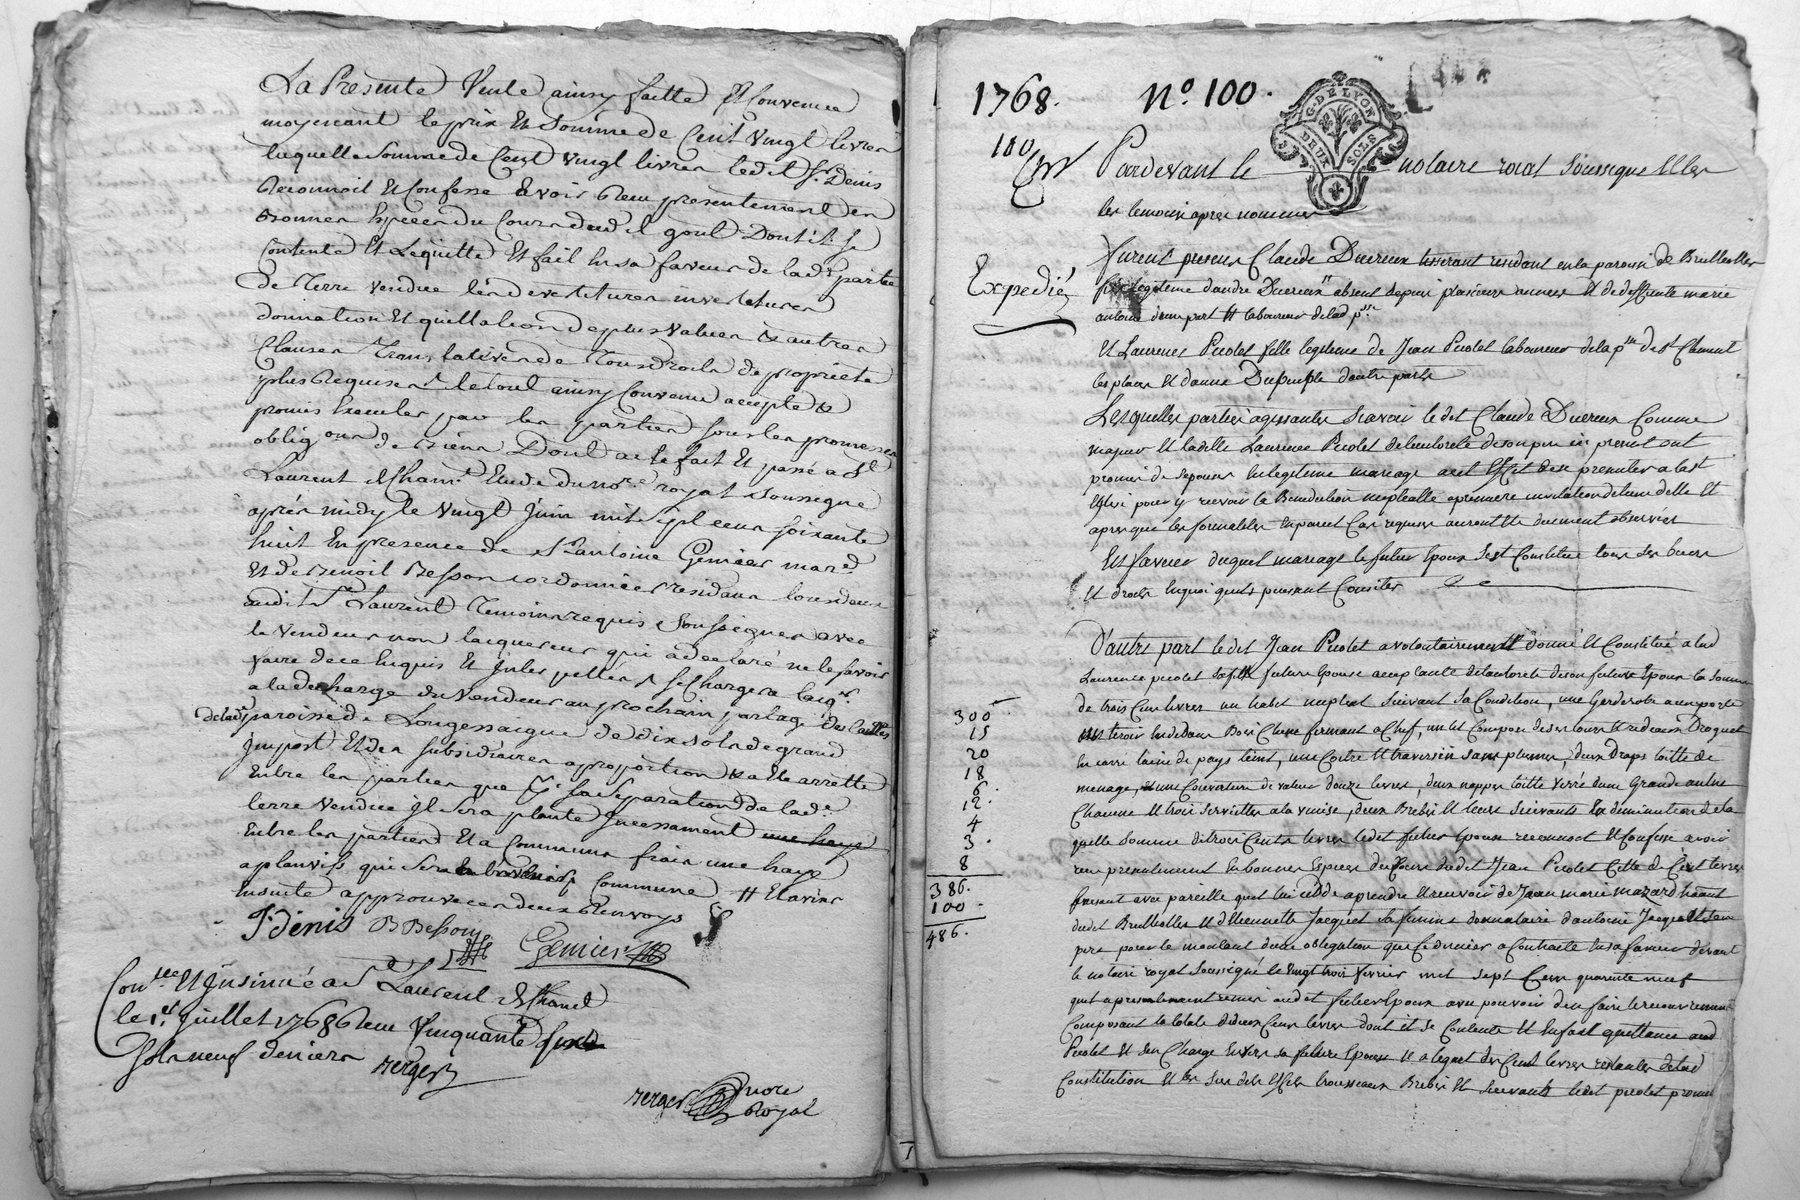 La Presente Vente ainsy faitte Et Convenue
moyenant le prix Et Somme de Cent Vingt livres
laquelle Somme de Cent Vingt livres ledit Sr. Denis
Reconnoit Et Confesse avoir Reçu presentement en
bonnes Especes du Cours dud it gout Dont il se
Contente Et Lequitte Et fait En sa faveur de lade. partie
de Terre Vendue les devetitures investitures
donnation Et quittation de plus Value & autres
Clauses Translatives de Tous droits de propriété
plus Requises le tout ainsy Convenu accepté &
promis Executer par les parties sous les promesses
obligons de biens Dont acte fait Et passé a St.
Laurent de Chamt. Etude du nore. royal Soussigné
après midy le Vingt Juin mil sept cens soixante
huit En presence de Sr. antoine Gemier mard.
Et de Benoit Besson cordonnier residans tous deux
audit St. Laurent Temoins requis Soussignes avec
le Vendeur non lacquereur qui a declaré ne le savoir
faire de ce Enquis Et Interpellé & se Chargera lacqr.
a la decharge du Vendeur au prochain partage des tailles
de lade. paroisse de Longessaigne de dix sols de grand
Impost Et des subsidiaires a proportion & a Ete arretté
Entre les parties que la Separation de lade.
terre vendue il sera planté Incessament une haye
Entre les parties Et a Communs frais une haye
a planviss qui Sera Commune # Et a vins
Ensuite approuvé ces deux Renvoys
J: denis B Besson
Gemier
Conlee. Et Insinué a St. Laurent de Chamt.
le 1er. Juillet 1768 Recu Cinquante
sols neuf deniers
verger
verger nore
Royal
1768. No. 100.
G. DE LYON
DEUX SOLS
100
Pardevant le notaire royal soussigné Et les
les temoins après nommes
Expedié
furent presens Claude Ducreux tisserant residant en la paroisse de Brullioles
fils legitime dandre Ducreux absent depuis plusieurs annees Et de deffunte marie
antoine dune part Et laboureur de lad psse.
Et Laurence Picolet fille legitime de Jean Picolet laboureur de la psse de St Clement
les places Et danne Dupeuple dautre part
Lesquelles parties agissantes Scavoir ledit Claude Ducreux Comme
majeur Et ladite Laurence Picolet de lautorité de son pere icy present ont
promis de sepouser En legitime mariage a cet Effet de se presenter a la Ste
Eglise pour y recevoir la Benediction nuptialle a premiere invitation de lun delle Et
apres que les formalites En pareil Cas requises auront Ete duement observees
En faveur duquel mariage le futur Epoux sest Constitue tous ses biens
Et droits En quoi quils puissent Consister
D'autre part ledit Jean Picolet a volontairement donné Et Constitué a lad
Laurence picolet sa fille future Epouse acceptante de lautorité de son futur Epoux la somme
de trois Cens livres un habit nuptial suivant sa Condition, une Garderobe a une porte
Et tiroir En dedans Bois Chene fermant a Clef, un lit Composé de ses tours Et rideaux Droguet
En carre laine de pays teint, une Coitre Et traversin sans plumes, deux Draps toille de
menage, Et une Couverture de valeur douze livres, deux nappes toille dune Grande aulne
Chacune Et trois serviettes a la venise, deux Brebis Et leurs suivants En diminution de la
quelle Somme de trois Cents livres ledit futur Epoux reconnoit Et Confesse avoir
recu presentement En bonnes Especes du Cours dudit Jean Picolet Celle de Cent livres
faisant avec pareille quil lui cedde a prendre Et recevoir de Jean marie mazard habitant
dudit Brullioles Et dEtiennette Jacquet sa femme donnataire dantoine Jacquet son
pere pour le montant dune obligation que Ce dernier a Contracté En sa faveur devant
le notaire royal Soussigné le vingt trois fevrier mil sept Cens quarante neuf
quil a presentement remis audit futur Epoux avec pouvoir den faire le recouvrement
Composant la totale de deux Cens livres dont il se Contente Et En fait quittance aud
Picolet Et sen Charge Envers sa future Epouse Et a legard des Cent livres restantes de lad
Constitution Et les sus dits Effets trousseaux Brebis Et suivants ledit picolet promet
300.
15
20
18
6.
12.
4
3.
8
386.
100.
486.
7